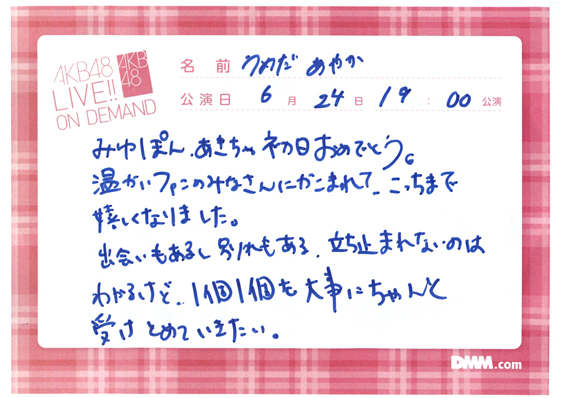 AKB48
LIVE!!
ON DEMAND
AKB
48
名前 うめだ あやか
公演日 6月24日19:00公演
みゆぽん、あきちゃ初日おめでとう。
温かいファンのみなさんにかこまれて、こっちまで
嬉しくなりました。
出会いもあるし別れもある、立ち止まれないのは
わかるけど、1個1個を大事にちゃんと
受けとめていきたい。
DMM.com